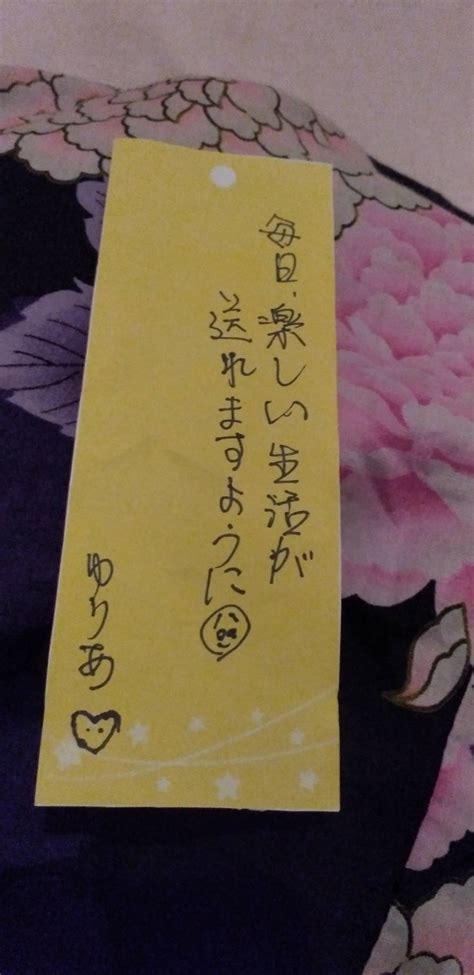 毎日、楽しい生活が
送れますように
ゆりあ